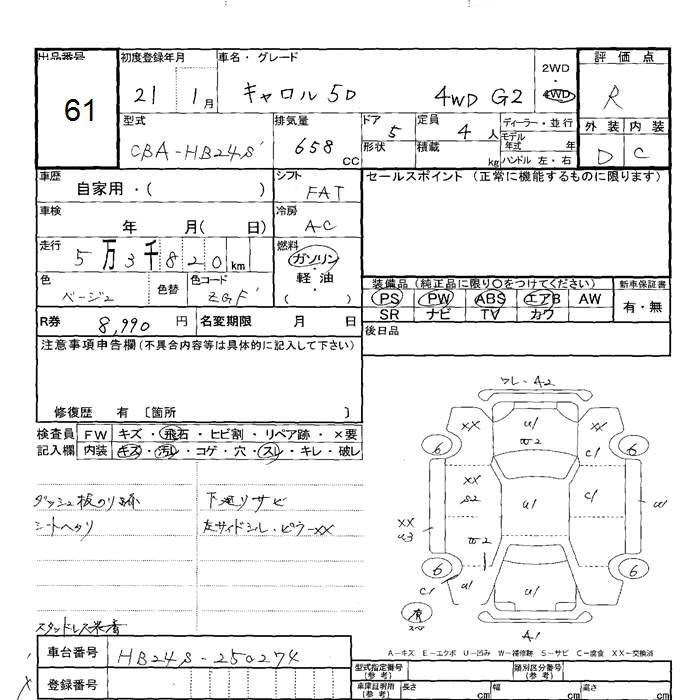 出品番号 初度登録年月 車名・グレード 2WD・4WD 評価点
61 21 1月 キャロル 5D 4WD G2 R
型式 排気量 ドア 定員 ディーラー・並行 外装 内装
CBA-HB24S 658 CC 5 4人 モデル年式 年 D C
形状 積載 kg ハンドル 左・右
車歴 シフト セールスポイント (正常に機能するものに限ります)
自家用・( ) FAT
車検 冷房
年 月( 日) A-C
走行 燃料
5万3千820km ガソリン・軽油・( )
色 色替 色コード 装備品 (純正品に限り○をつけてください) 新車保証書
ベージュ ZGF PS PW ABS エアB AW 有・無
SR ナビ TV カワ
R券 8,990円 名変期限 月 日 後日品
注意事項申告欄(不具合内容等は具体的に記入して下さい)
修復歴 有 〔箇所 〕
検査員 FW キズ・飛石・ヒビ割・リペア跡・×要
記入欄 内装 キズ・汚レ・コゲ・穴・スレ・キレ・破レ
ダッシュ板のり跡 下廻りサビ
シートヘタリ 左サイドシル・ピラーXX
スタッドレス装着
ワレ・A2
XX U1 XX
W2
6 6
C1
XX
S2 U1 C1 U1
XX
U3
W2
6 6
C1 U1 U1 U1
有
スペア
A1
A-キズ E-エクボ U-凹み W-補修跡 S-サビ C-腐食 XX-交換済
車台番号 HB24S-250274
登録番号
型式指定番号 (参考) 類別区分番号 (参考)
車庫証明用 (参考) 長さ cm 幅 cm 高さ cm